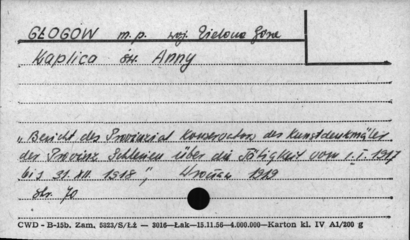 GŁOGÓW m.p. woj. Zielona Góra
Kaplica św. Anny
„Bericht des Provinzial Konservators der Kunstdenkmäler
der Provinz Schlesien über die Tätigkeit vom 1.I.1917
bis 31.XII.1918", 1919
str. 70
CWD - B-15b. Zam. 5323/S/Łż — 3016—Łak—15.11.56—4.000.000—Karton kl. IV A1/200 g